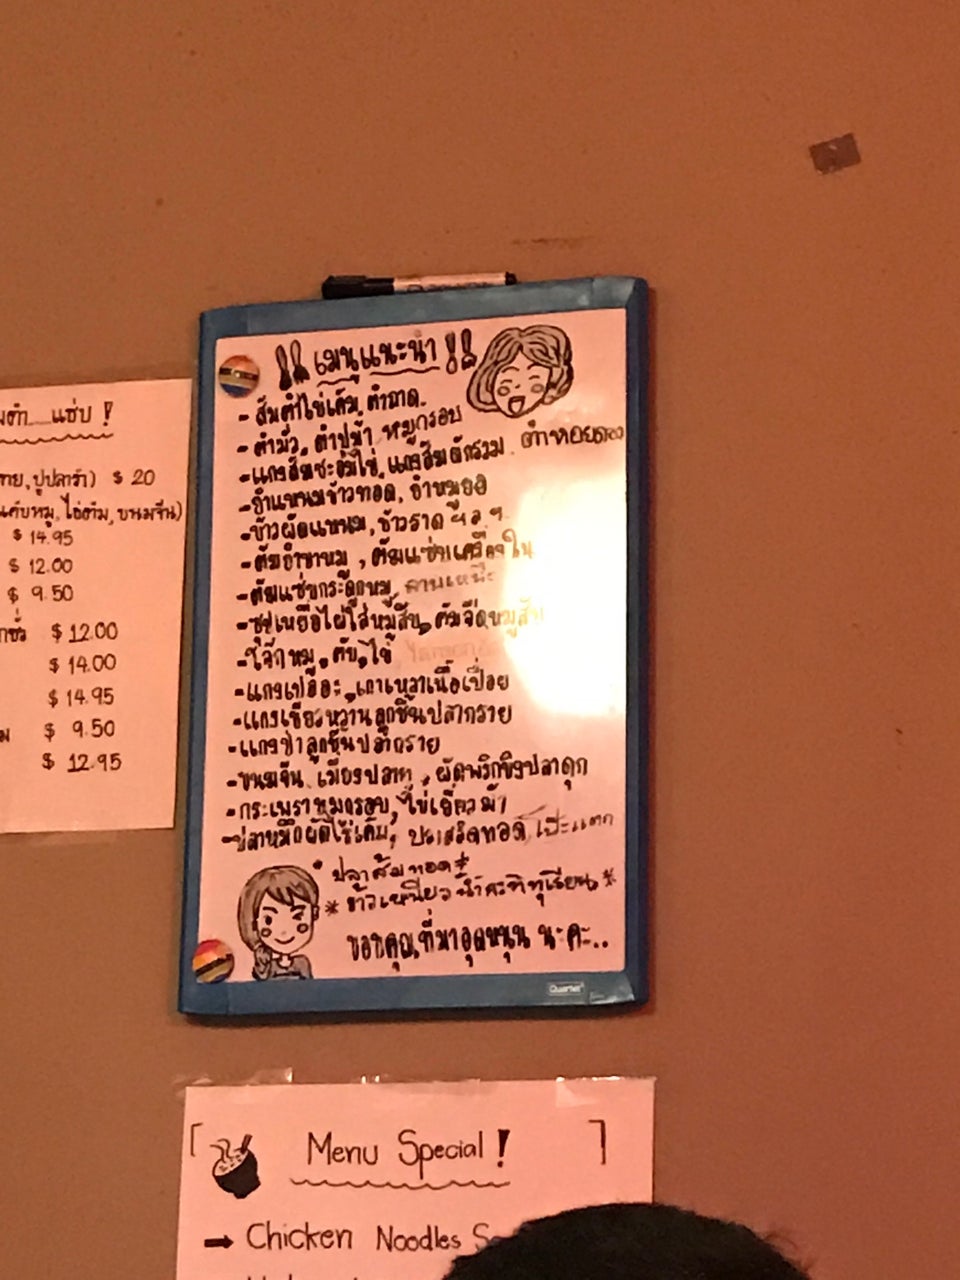 !! เมนูแนะนำ !!
- ส้มตำไข่เค็ม, ตำถาด.
- ตำมั่ว, ตำปูม้า, หมูกรอบ
- แกงส้มชะอมไข่, แกงส้มผักรวม, ตำหอยดอง
- ยำแหนมข้าวทอด, ยำหมูยอ
- ข้าวผัดแหนม, ข้าวราด
- ต้มยำขาหมู, ต้มแซ่บเครื่องใน
- ต้มแซ่บกระดูกหมู,
- ซุปเหยื่อไผ่ใส่หมูสับ, ต้มจืดหมูสับ
- โจ๊กหมู, ตับ, ไข่
- แกงเปอะ, เกาเหลาเนื้อเปื่อย
- แกงเขียวหวานลูกชิ้นปลากราย
- แกงป่าลูกชิ้นปลากราย
- ขนมจีน, เมี่ยงปลาเผา, ผัดพริกขิงปลาดุก
- กระเพราหมูกรอบ, ไข่เยี่ยวม้า
- ปลาหมึกผัดไข่เค็ม, ปลาสลิดทอด, โป๊ะแตก
* ปลาส้มทอด *
* ข้าวเหนียวน้ำกะทิทุเรียน *
ขอบคุณที่มาอุดหนุน นะคะ..
Quartet
แซ่บ !
ปูปลาร้า) $ 20
แค๊บหมู, ไข่ต้ม, ขนมจีน)
$ 14.95
$ 12.00
$ 9.50
$ 12.00
$ 14.00
$ 14.95
$ 9.50
$ 12.95
[ Menu Special ! ]
→ Chicken Noodles